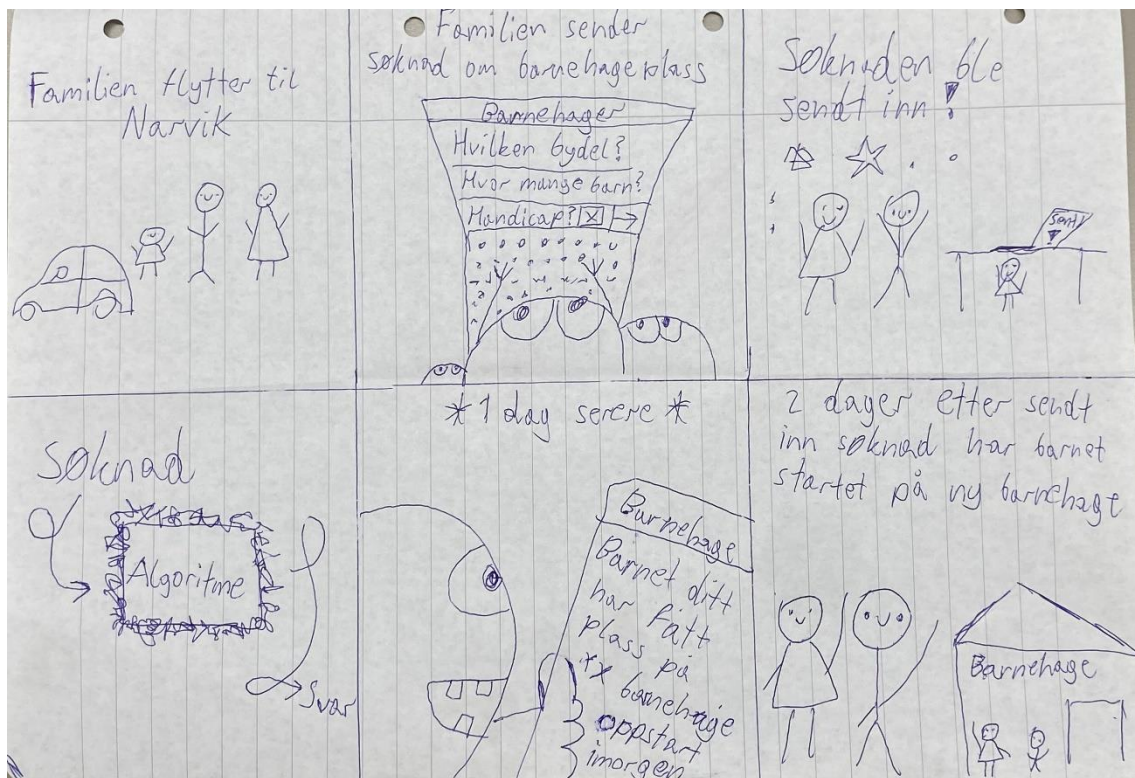 Familien flytter til
Narvik
Familien sender
søknad om barnehageplass
Barnehager
Hvilken bydel?
Hvor mange barn?
Handicap? X →
Søknaden ble
sendt inn!
Sent!
Søknad
Algoritme
Svar
* 1 dag senere *
Barnehage
Barnet ditt
har fått
plass på
** barnehage
oppstart
imorgen
2 dager etter sendt
inn søknad har barnet
startet på ny barnehage
Barnehage